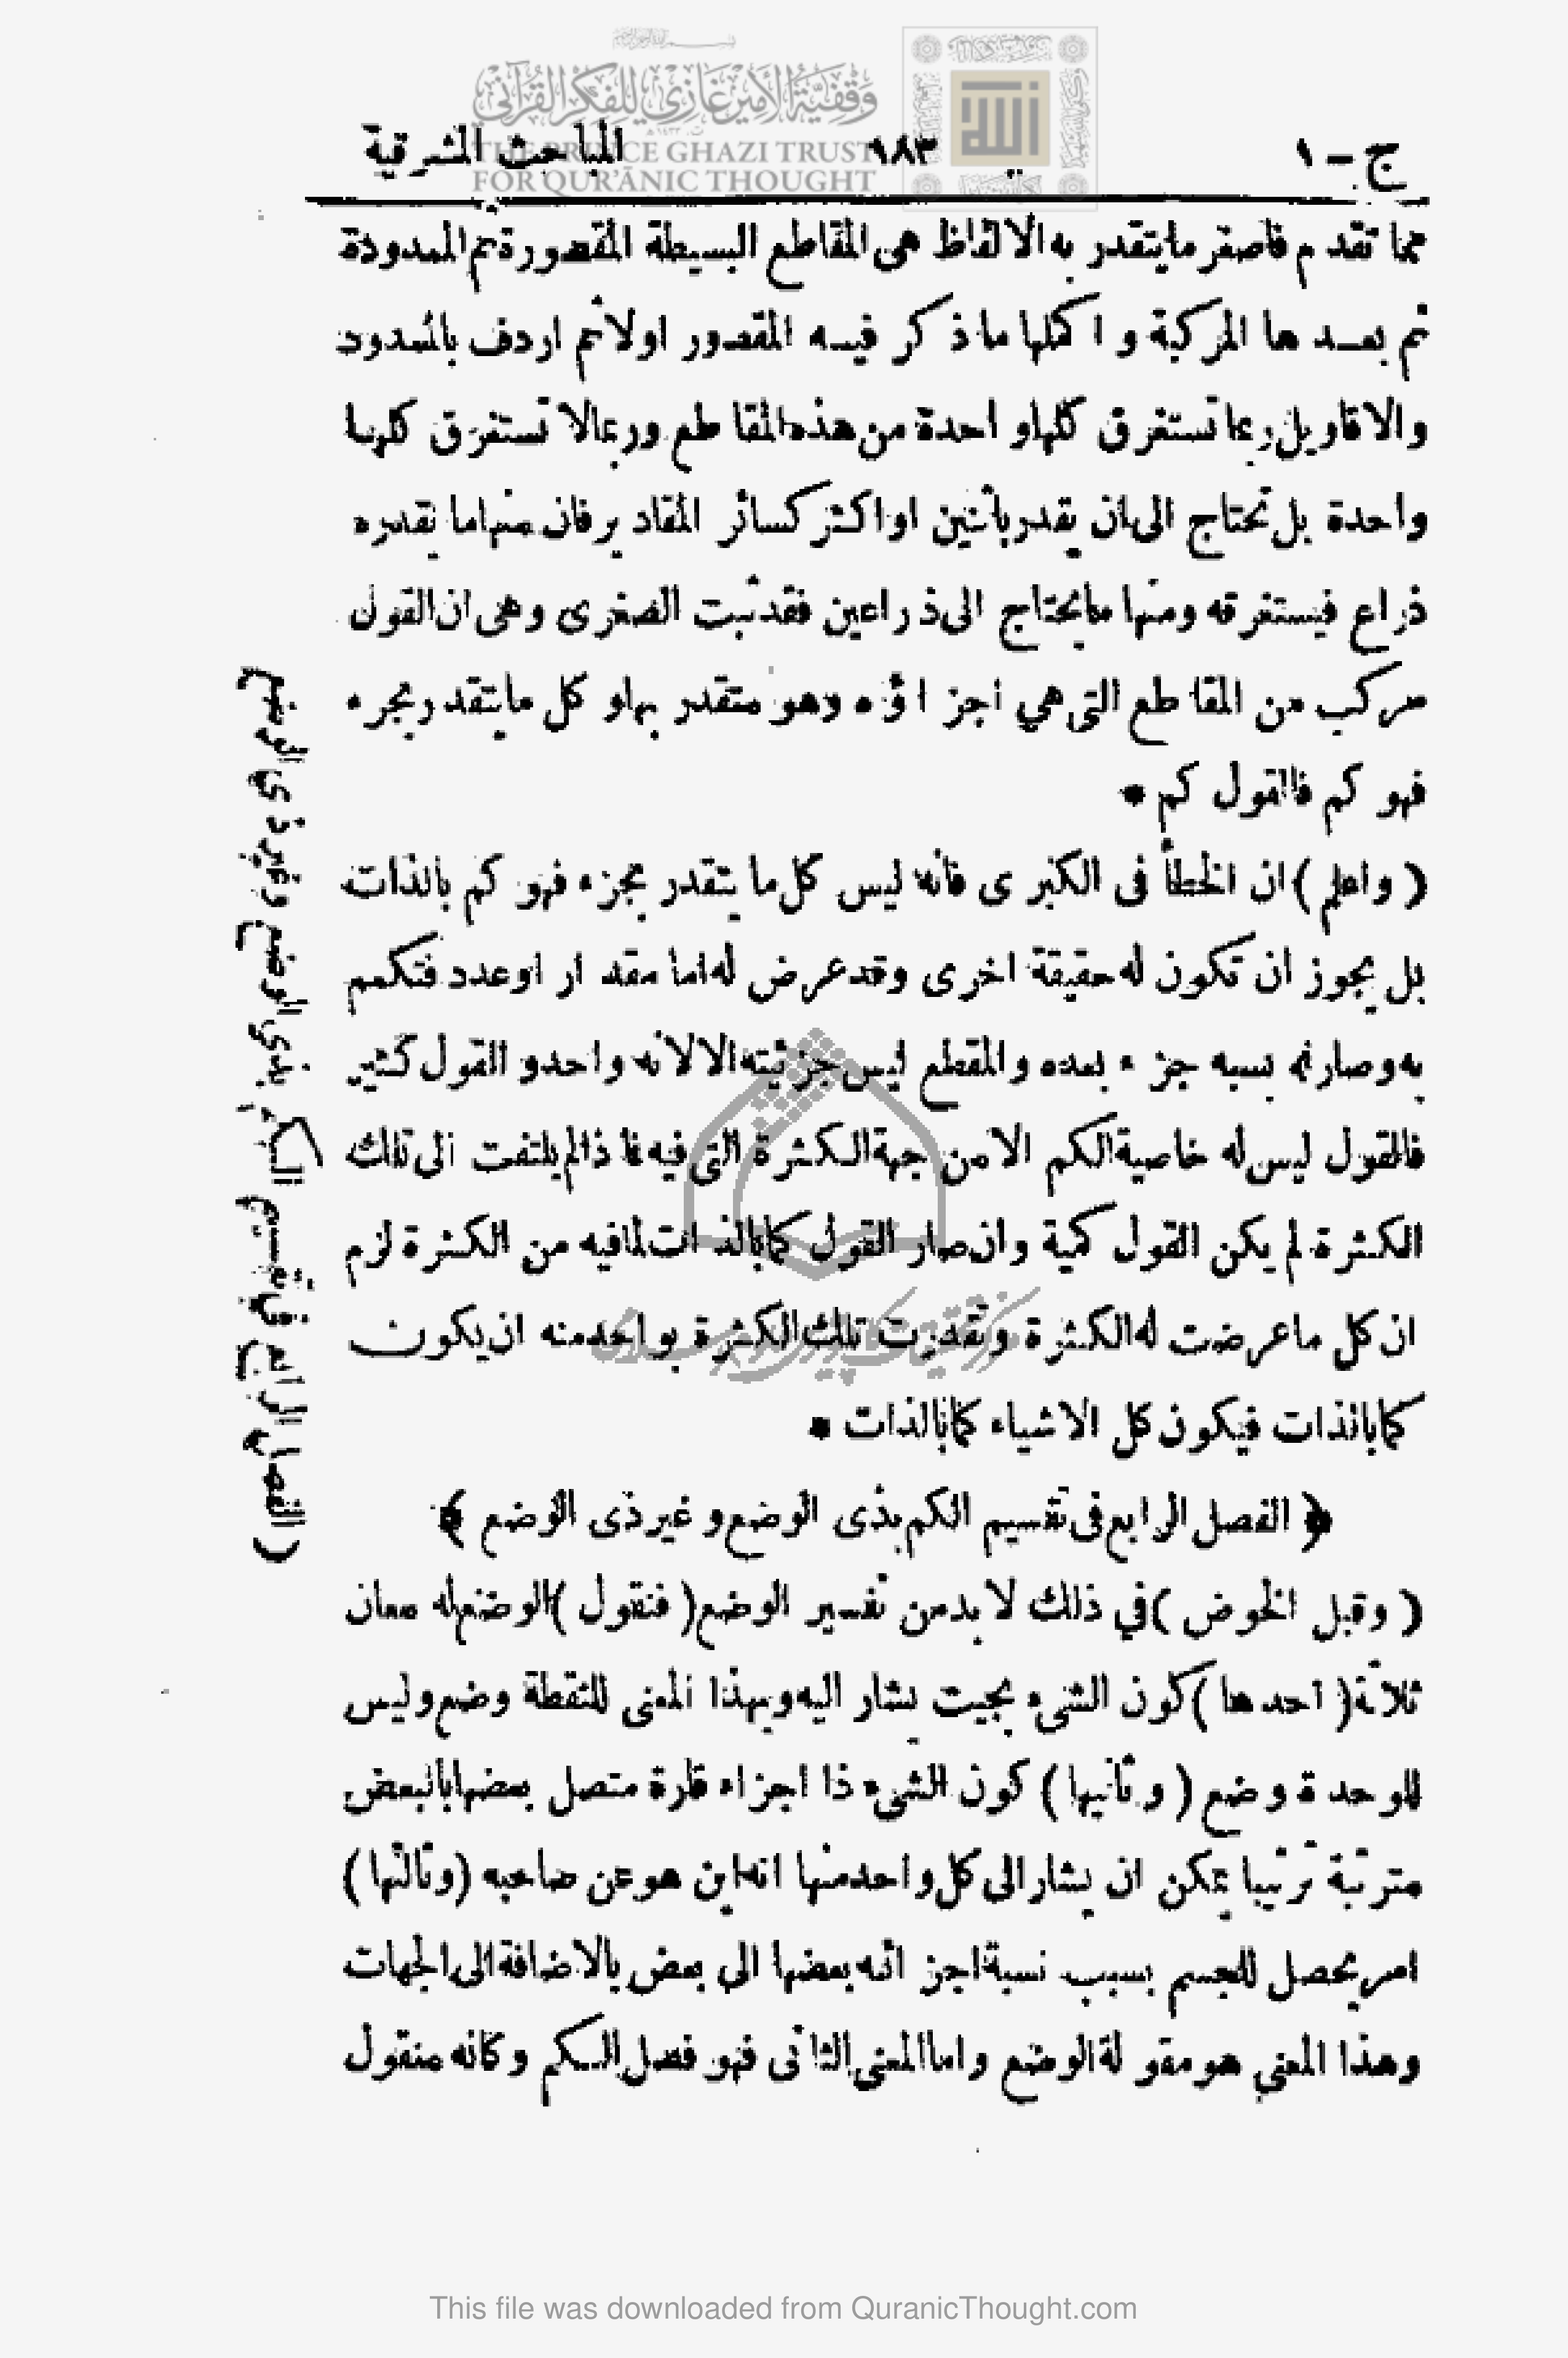 وقفية الأمير غازي للفكر القرآني
THE PRINCE GHAZI TRUST
FOR QUR'ĀNIC THOUGHT
ج - ١ ١٨٣ المباحث المشرقية
مما تقدم فاصغر ما يتقدر به الالفاظ هى المقاطع البسيطة المقصورة ثم الممدودة
ثم بعدها المركبة و اكملها ما ذكر فيه المقصور اولا ثم اردف بالممدود
والاقاويل ربما تستغرق كلها واحدة من هذه المقاطع وربما لا تستغرق كلها
واحدة بل تحتاج الى ان يقدر باثنين او اكثر كسائر المقادير فان منها ما يقدره
ذراع فيستغرقه ومنها ما يحتاج الى ذراعين فقد ثبت الصغرى وهى ان القول
مركب من المقاطع التى هي اجزاؤه وهو متقدر بها و كل ما يتقدر بجزء
فهو كم فالقول كم *
( واعلم ) ان الخطأ فى الكبرى فانه ليس كل ما يتقدر بجزء فهو كم بالذات
بل يجوز ان تكون له حقيقة اخرى وقد عرض له اما مقدار او عدد فتكمم
به وصار له بسببه جزء يعده والمقطع ليس جزئيته الا لانه واحد و القول كثير
فالقول ليس له خاصية الكم الا من جهة الكثرة التى فيه فاذا لم يلتفت الى تلك
الكثرة لم يكن القول كمية وان صار القول كما بالذات لما فيه من الكثرة لزم
ان كل ما عرضت له الكثرة وتقدرت تلك الكثرة بواحد منه ان يكون
كما بالذات فيكون كل الاشياء كما بالذات *
﴿ الفصل الرابع فى تقسيم الكم بذى الوضع و غير ذى الوضع ﴾
( وقبل الخوض ) في ذلك لا بد من تفسير الوضع ( فنقول ) الوضع له معان
ثلاثة ( احدها ) كون الشىء بحيث يشار اليه وبهذا المعنى للنقطة وضع وليس
للوحدة وضع ( وثانيها ) كون الشىء ذا اجزاء قارة متصل بعضها بالبعض
مترتبة ترتيبا يمكن ان يشار الى كل واحد منها انه اين هو عن صاحبه ( وثالثها )
امر يحصل للجسم بسبب نسبة اجزائه بعضها الى بعض بالاضافة الى الجهات
وهذا المعنى هو مقولة الوضع واما المعنى الثانى فهو فصل الكم وكانه منقول
( الفصل الرابع في تقسيم الكم بذي الوضع وغير ذي الوضع
This file was downloaded from QuranicThought.com